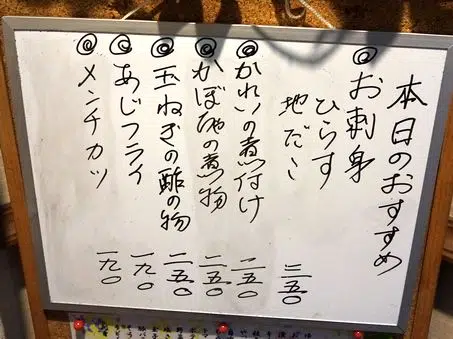 本日のおすすめ
◎お刺身
ひらす
地だこ 三五〇
◎かれいの煮付け 二五〇
◎かぼちゃの煮物 二五〇
◎玉ねぎの酢の物 二五〇
◎あじフライ 一九〇
◎メンチカツ 一九〇